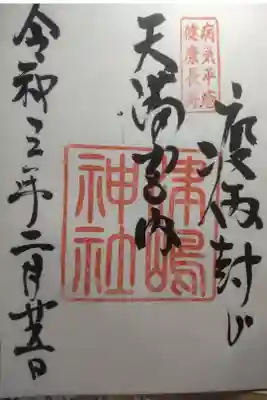 疫病封じ
病気平癒
健康長寿
天満宮内
津嶋
神社
令和三年二月廿五日